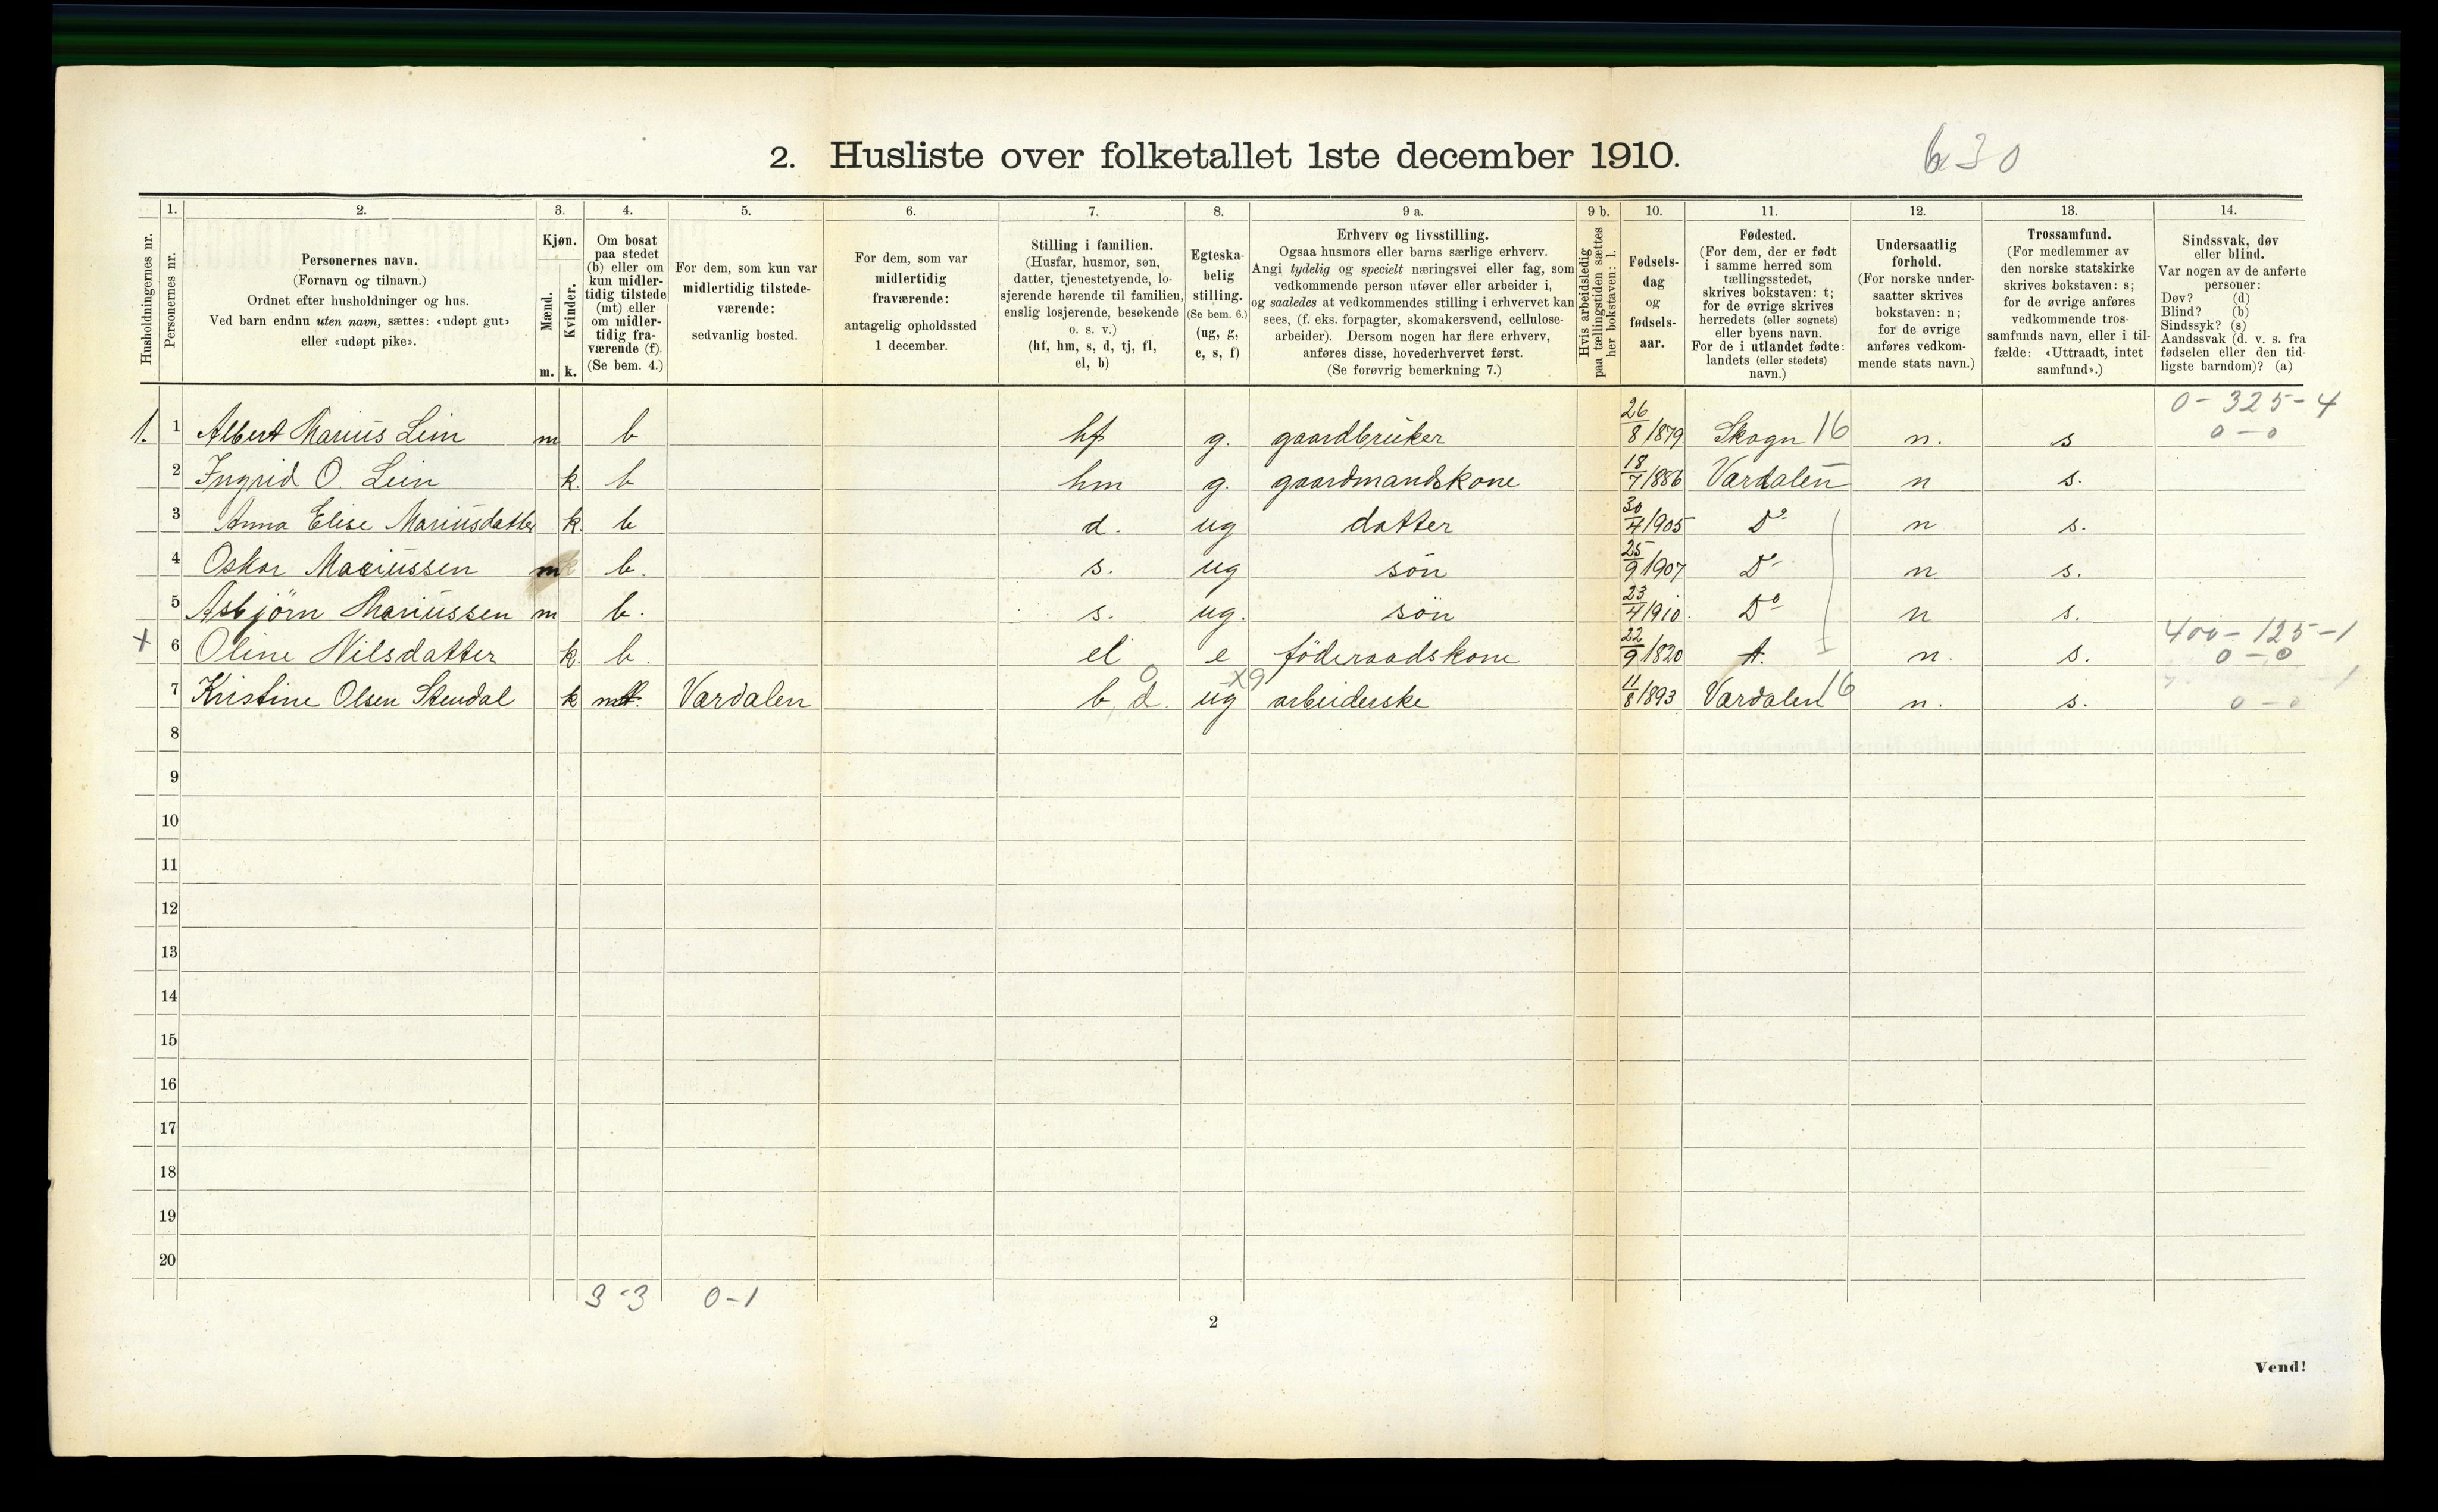 2. Husliste over folketallet 1ste december 1910.
630
Husholdningernes nr.
1. Personernes nr.
2. Personernes navn.
(Fornavn og tilnavn.)
Ordnet efter husholdninger og hus.
Ved barn endnu uten navn, sættes: «udøpt gut»
eller «udøpt pike».
3. Kjøn.
Mænd. Kvinder.
m. k.
4. Om bosat
paa stedet
(b) eller om
kun midler-
tidig tilstede
(mt) eller
om midler-
tidig fra-
værende (f).
(Se bem. 4.)
5. For dem, som kun var
midlertidig tilstede-
værende:
sedvanlig bosted.
6. For dem, som var
midlertidig
fraværende:
antagelig opholdssted
1 december.
7. Stilling i familien.
(Husfar, husmor, søn,
datter, tjenestetyende, lo-
sjerende hørende til familien,
enslig losjerende, besøkende
o. s. v.)
(hf, hm, s, d, tj, fl,
el, b)
8. Egteska-
belig
stilling.
(Se bem. 6.)
(ug, g,
e, s, f)
9 a. Erhverv og livsstilling.
Ogsaa husmors eller barns særlige erhverv.
Angi tydelig og specielt næringsvei eller fag, som
vedkommende person utøver eller arbeider i,
og saaledes at vedkommendes stilling i erhvervet kan
sees, (f. eks. forpagter, skomakersvend, cellulose-
arbeider). Dersom nogen har flere erhverv,
anføres disse, hovederhvervet først.
(Se forøvrig bemerkning 7.)
9 b. Hvis arbeidsledig
paa tællingstiden sættes
her bokstaven: l.
10. Fødsels-
dag
og
fødsels-
aar.
11. Fødested.
(For dem, der er født
i samme herred som
tællingsstedet,
skrives bokstaven: t;
for de øvrige skrives
herredets (eller sognets)
eller byens navn.
For de i utlandet fødte:
landets (eller stedets)
navn.)
12. Undersaatlig
forhold.
(For norske under-
saatter skrives
bokstaven: n;
for de øvrige
anføres vedkom-
mende stats navn.)
13. Trossamfund.
(For medlemmer av
den norske statskirke
skrives bokstaven: s;
for de øvrige anføres
vedkommende tros-
samfunds navn, eller i til-
fælde: «Uttraadt, intet
samfund».)
14. Sindssvak, døv
eller blind.
Var nogen av de anførte
personer:
Døv? (d)
Blind? (b)
Sindssyk? (s)
Aandssvak (d. v. s. fra
fødselen eller den tid-
ligste barndom)? (a)
0-325-4
1. 1 Albert Marius Lein m b hf g. gaardbruker 26/8 1879. Skogn 16 n. s 0-0
2 Ingrid O. Lein k. b hm g. gaardmandskone 18/7 1886 Værdalen n s.
3 Anna Elise Mariusdatter k. b d. ug datter 30/4 1905 Do n s.
4 Oskar Mariussen m b. s. ug søn 25/9 1907 Do n s.
5 Asbjörn Mariussen m b. s. ug. søn 23/4 1910. Do n s.
400-125-1
x 6 Oline Nilsdatter k. b. el e föderaadskone 22/9 1820 t. n. s. 0-0
7 Kristine Olsen Stendal k mt. Værdalen b, d. ug x9 arbeiderske 11/8 1893 Værdalen 16 n. s. 0-0
8
9
10
11
12
13
14
15
16
17
18
19
20
3-3 0-1
2
Vend!